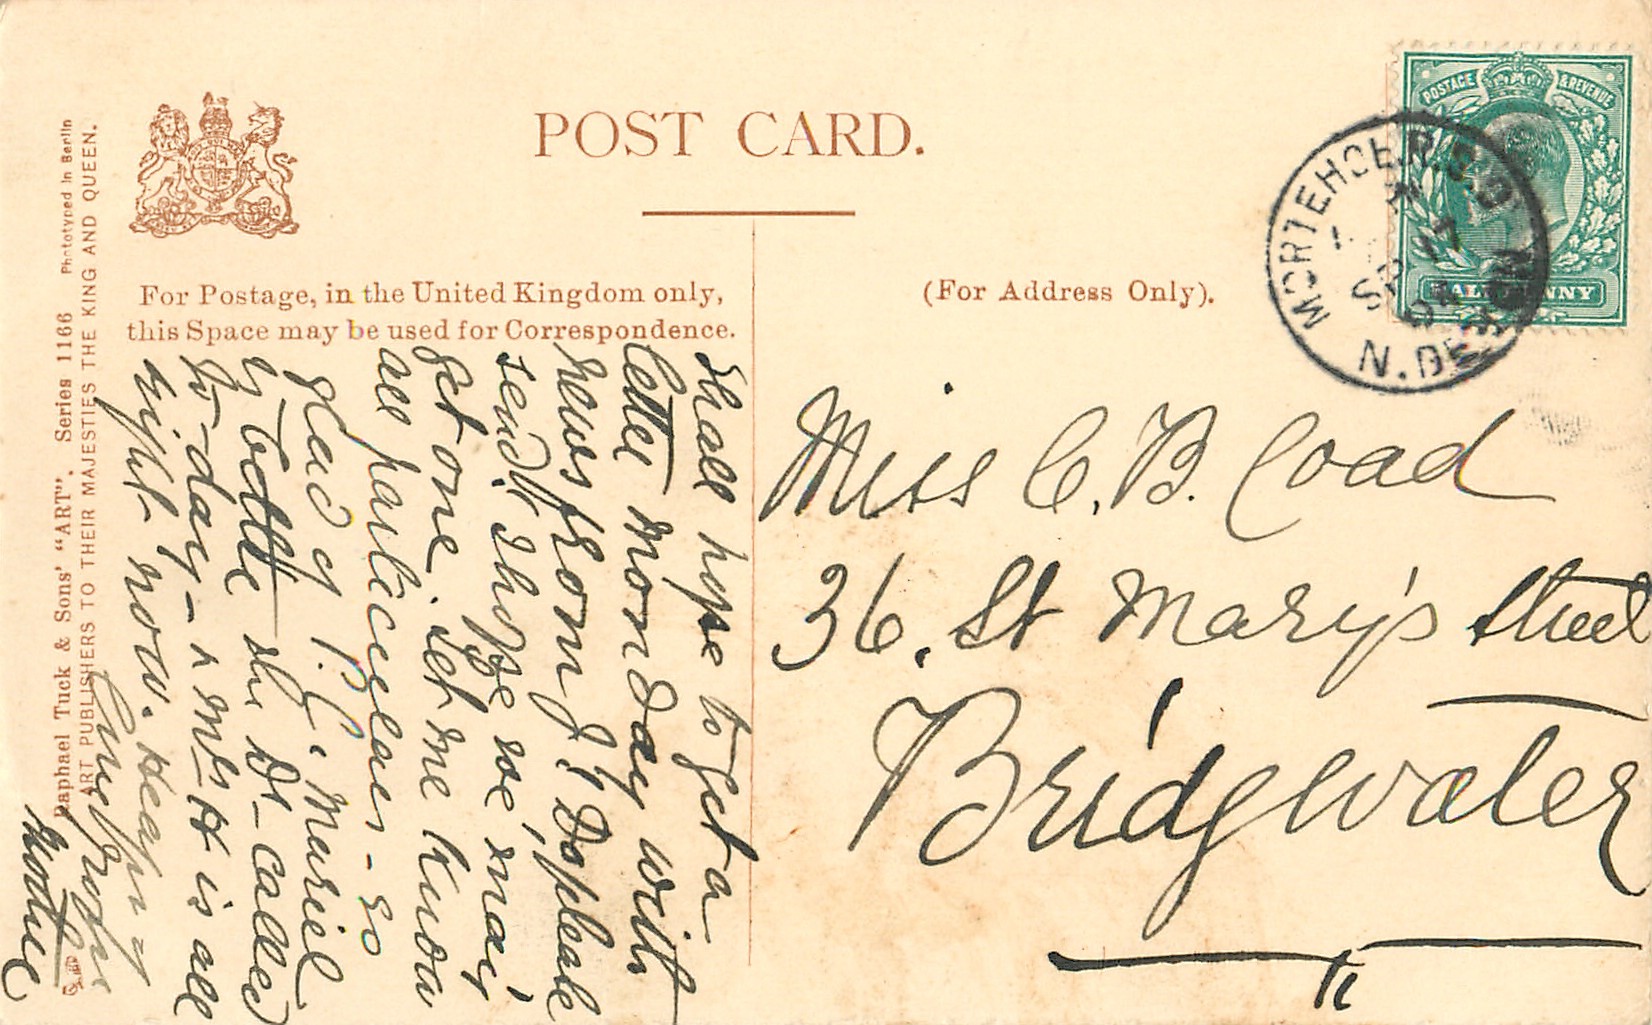 POST CARD.
For Postage, in the United Kingdom only,
this Space may be used for Correspondence.
(For Address Only).
Raphael Tuck & Sons' "ART". Series 1166 Phototyped in Berlin
ART PUBLISHERS TO THEIR MAJESTIES THE KING AND QUEEN.
POSTAGE & REVENUE
HALFPENNY
MORTEHOE.R.S.O
N. DEVON
Miss C. B. Coad
36, St Mary's Street
Bridgwater
Shall hope to get a
letter Monday with
news from J? Do please
send it I hope we may
get one. Let me know
all particulars - so
glad of P.C. Muriel
is better she Dr- called
to-day - & Mrs H is all
right now. Heaps of
love
Mother